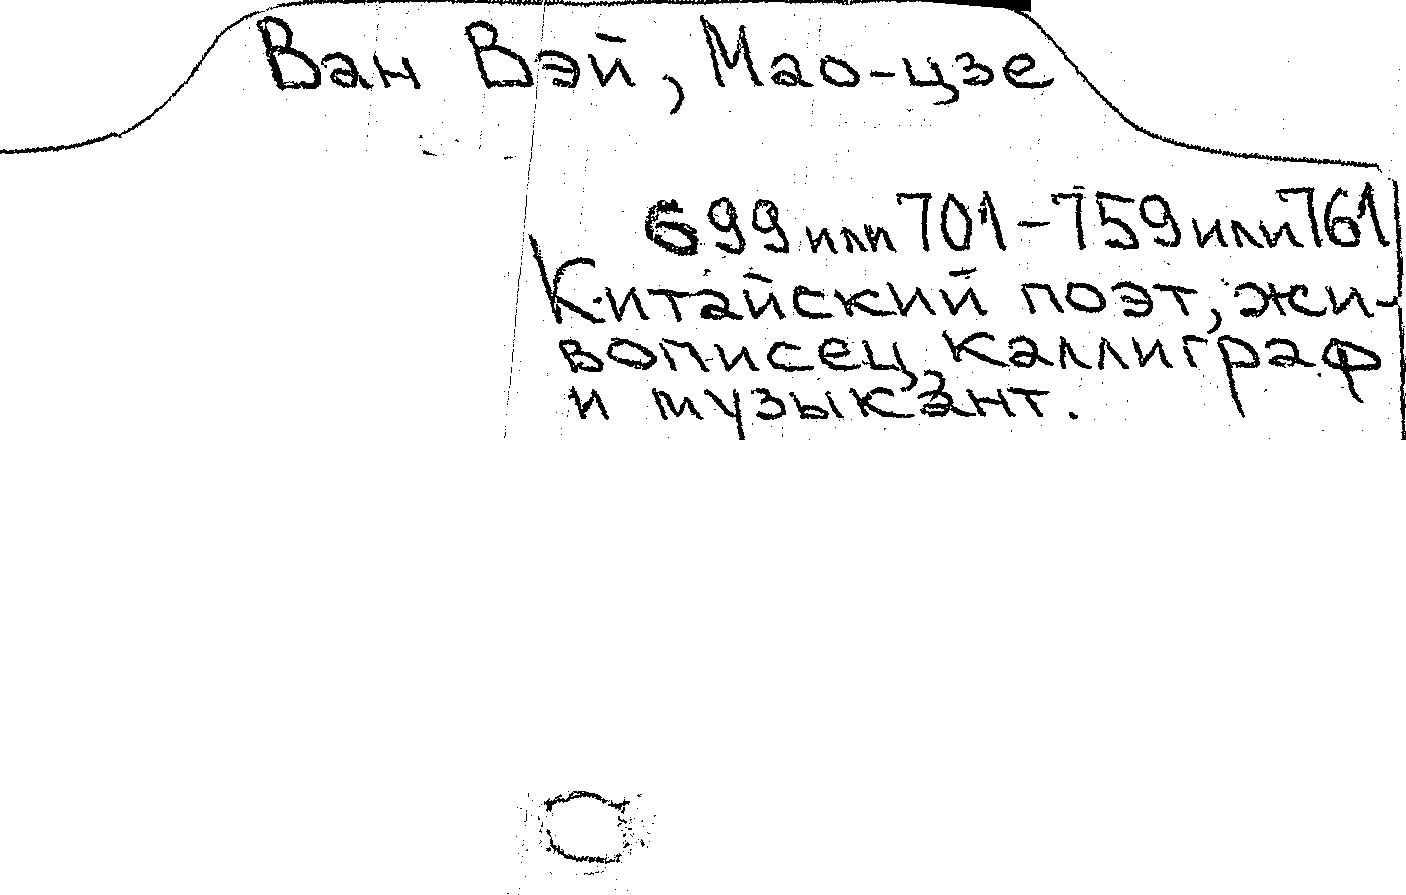 Ван Вэй, Мао-цзе
699 или 701 - 759 или 761
Китайский поэт, жи-
вописец, каллиграф
и музыкант.